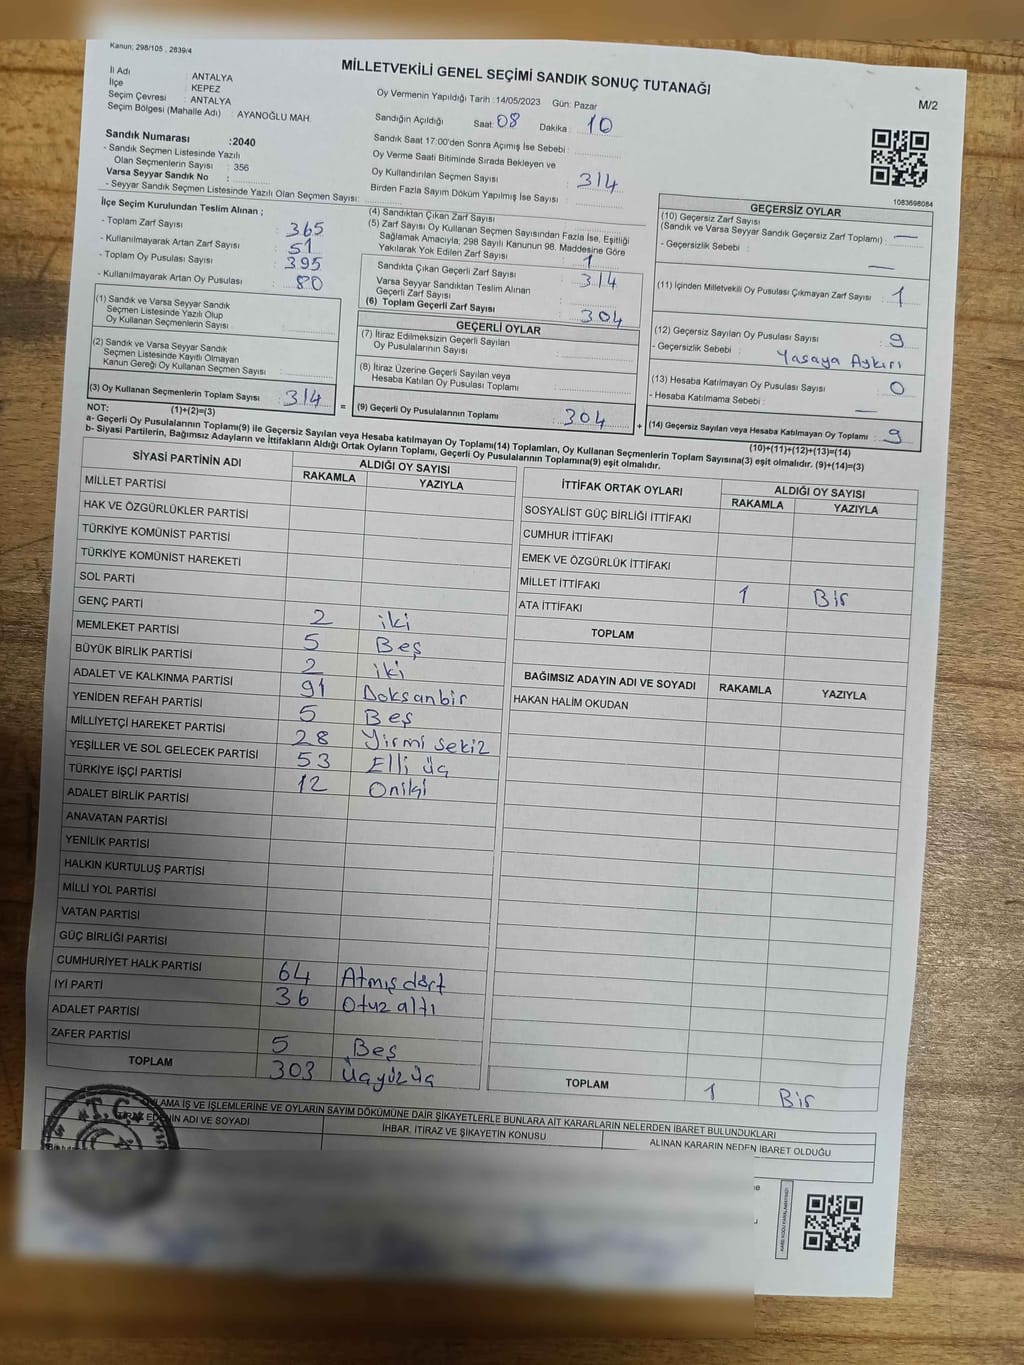 Kanun; 298/105 , 2839/4
MİLLETVEKİLİ GENEL SEÇİMİ SANDIK SONUÇ TUTANAĞI
M/2
İl Adı : ANTALYA
İlçe : KEPEZ
Seçim Çevresi : ANTALYA
Seçim Bölgesi (Mahalle Adı) : AYANOĞLU MAH.
Oy Vermenin Yapıldığı Tarih :14/05/2023 Gün: Pazar
Sandığın Açıldığı Saat: 08 Dakika: 10
Sandık Saat 17:00'den Sonra Açımış İse Sebebi :
Oy Verme Saati Bitiminde Sırada Bekleyen ve
Oy Kullandırılan Seçmen Sayısı : 314
Birden Fazla Sayım Döküm Yapılmış İse Sayısı :
Sandık Numarası :2040
- Sandık Seçmen Listesinde Yazılı
Olan Seçmenlerin Sayısı : 356
Varsa Seyyar Sandık No :
- Seyyar Sandık Seçmen Listesinde Yazılı Olan Seçmen Sayısı:
1083698084
İlçe Seçim Kurulundan Teslim Alınan ;
- Toplam Zarf Sayısı : 365
- Kullanılmayarak Artan Zarf Sayısı : 51
- Toplam Oy Pusulası Sayısı : 395
- Kullanılmayarak Artan Oy Pusulası : 80
(1) Sandık ve Varsa Seyyar Sandık
Seçmen Listesinde Yazılı Olup
Oy Kullanan Seçmenlerin Sayısı :
(2) Sandık ve Varsa Seyyar Sandık
Seçmen Listesinde Kayıtlı Olmayan
Kanun Gereği Oy Kullanan Seçmen Sayısı :
(3) Oy Kullanan Seçmenlerin Toplam Sayısı : 314
(4) Sandıktan Çıkan Zarf Sayısı
(5) Zarf Sayısı Oy Kullanan Seçmen Sayısından Fazla İse, Eşitliği
Sağlamak Amacıyla; 298 Sayılı Kanunun 98. Maddesine Göre
Yakılarak Yok Edilen Zarf Sayısı : 1
Sandıkta Çıkan Geçerli Zarf Sayısı : 314
Varsa Seyyar Sandıktan Teslim Alınan
Geçerli Zarf Sayısı :
(6) Toplam Geçerli Zarf Sayısı : 304
GEÇERLİ OYLAR
(7) İtiraz Edilmeksizin Geçerli Sayılan
Oy Pusulalarının Sayısı :
(8) İtiraz Üzerine Geçerli Sayılan veya
Hesaba Katılan Oy Pusulası Toplamı :
= (9) Geçerli Oy Pusulalarının Toplamı : 304
GEÇERSİZ OYLAR
(10) Geçersiz Zarf Sayısı
(Sandık ve Varsa Seyyar Sandık Geçersiz Zarf Toplamı) : —
- Geçersizlik Sebebi : —
(11) İçinden Milletvekili Oy Pusulası Çıkmayan Zarf Sayısı : 1
(12) Geçersiz Sayılan Oy Pusulası Sayısı : 9
- Geçersizlik Sebebi : Yasaya Aykırı
(13) Hesaba Katılmayan Oy Pusulası Sayısı : 0
- Hesaba Katılmama Sebebi : —
+ (14) Geçersiz Sayılan veya Hesaba Katılmayan Oy Toplamı : 9
NOT: (1)+(2)=(3)
(10)+(11)+(12)+(13)=(14)
a- Geçerli Oy Pusulaların Toplamı(9) ile Geçersiz Sayılan veya Hesaba katılmayan Oy Toplamı(14) Toplamları, Oy Kullanan Seçmenlerin Toplam Sayısına(3) eşit olmalıdır. (9)+(14)=(3)
b- Siyasi Partilerin, Bağımsız Adayların ve İttifakların Aldığı Ortak Oyların Toplamı, Geçerli Oy Pusulalarının Toplamına(9) eşit olmalıdır.
SİYASİ PARTİNİN ADI ALDIĞI OY SAYISI
RAKAMLA YAZIYLA
MİLLET PARTİSİ
HAK VE ÖZGÜRLÜKLER PARTİSİ
TÜRKİYE KOMÜNİST PARTİSİ
TÜRKİYE KOMÜNİST HAREKETİ
SOL PARTİ
GENÇ PARTİ 2 iki
MEMLEKET PARTİSİ 5 Beş
BÜYÜK BİRLİK PARTİSİ 2 iki
ADALET VE KALKINMA PARTİSİ 91 Doksanbir
YENİDEN REFAH PARTİSİ 5 Beş
MİLLİYETÇİ HAREKET PARTİSİ 28 Yirmi sekiz
YEŞİLLER VE SOL GELECEK PARTİSİ 53 Elli üç
TÜRKİYE İŞÇİ PARTİSİ 12 Oniki
ADALET BİRLİK PARTİSİ
ANAVATAN PARTİSİ
YENİLİK PARTİSİ
HALKIN KURTULUŞ PARTİSİ
MİLLİ YOL PARTİSİ
VATAN PARTİSİ
GÜÇ BİRLİĞİ PARTİSİ
CUMHURİYET HALK PARTİSİ 64 Atmış dört
İYİ PARTİ 36 Otuz altı
ADALET PARTİSİ
ZAFER PARTİSİ 5 Beş
TOPLAM 303 Üçyüz üç
İTTİFAK ORTAK OYLARI ALDIĞI OY SAYISI
RAKAMLA YAZIYLA
SOSYALİST GÜÇ BİRLİĞİ İTTİFAKI
CUMHUR İTTİFAKI
EMEK VE ÖZGÜRLÜK İTTİFAKI
MİLLET İTTİFAKI 1 Bir
ATA İTTİFAKI
TOPLAM
BAĞIMSIZ ADAYIN ADI VE SOYADI RAKAMLA YAZIYLA
HAKAN HALİM OKUDAN
TOPLAM 1 Bir
OYLAMA İŞ VE İŞLEMLERİNE VE OYLARIN SAYIM DÖKÜMÜNE DAİR ŞİKAYETLERLE BUNLARA AİT KARARLARIN NELERDEN İBARET BULUNDUKLARI
İTİRAZ EDENİN ADI VE SOYADI İHBAR, İTİRAZ VE ŞİKAYETİN KONUSU ALINAN KARARIN NEDEN İBARET OLDUĞU
T.C.